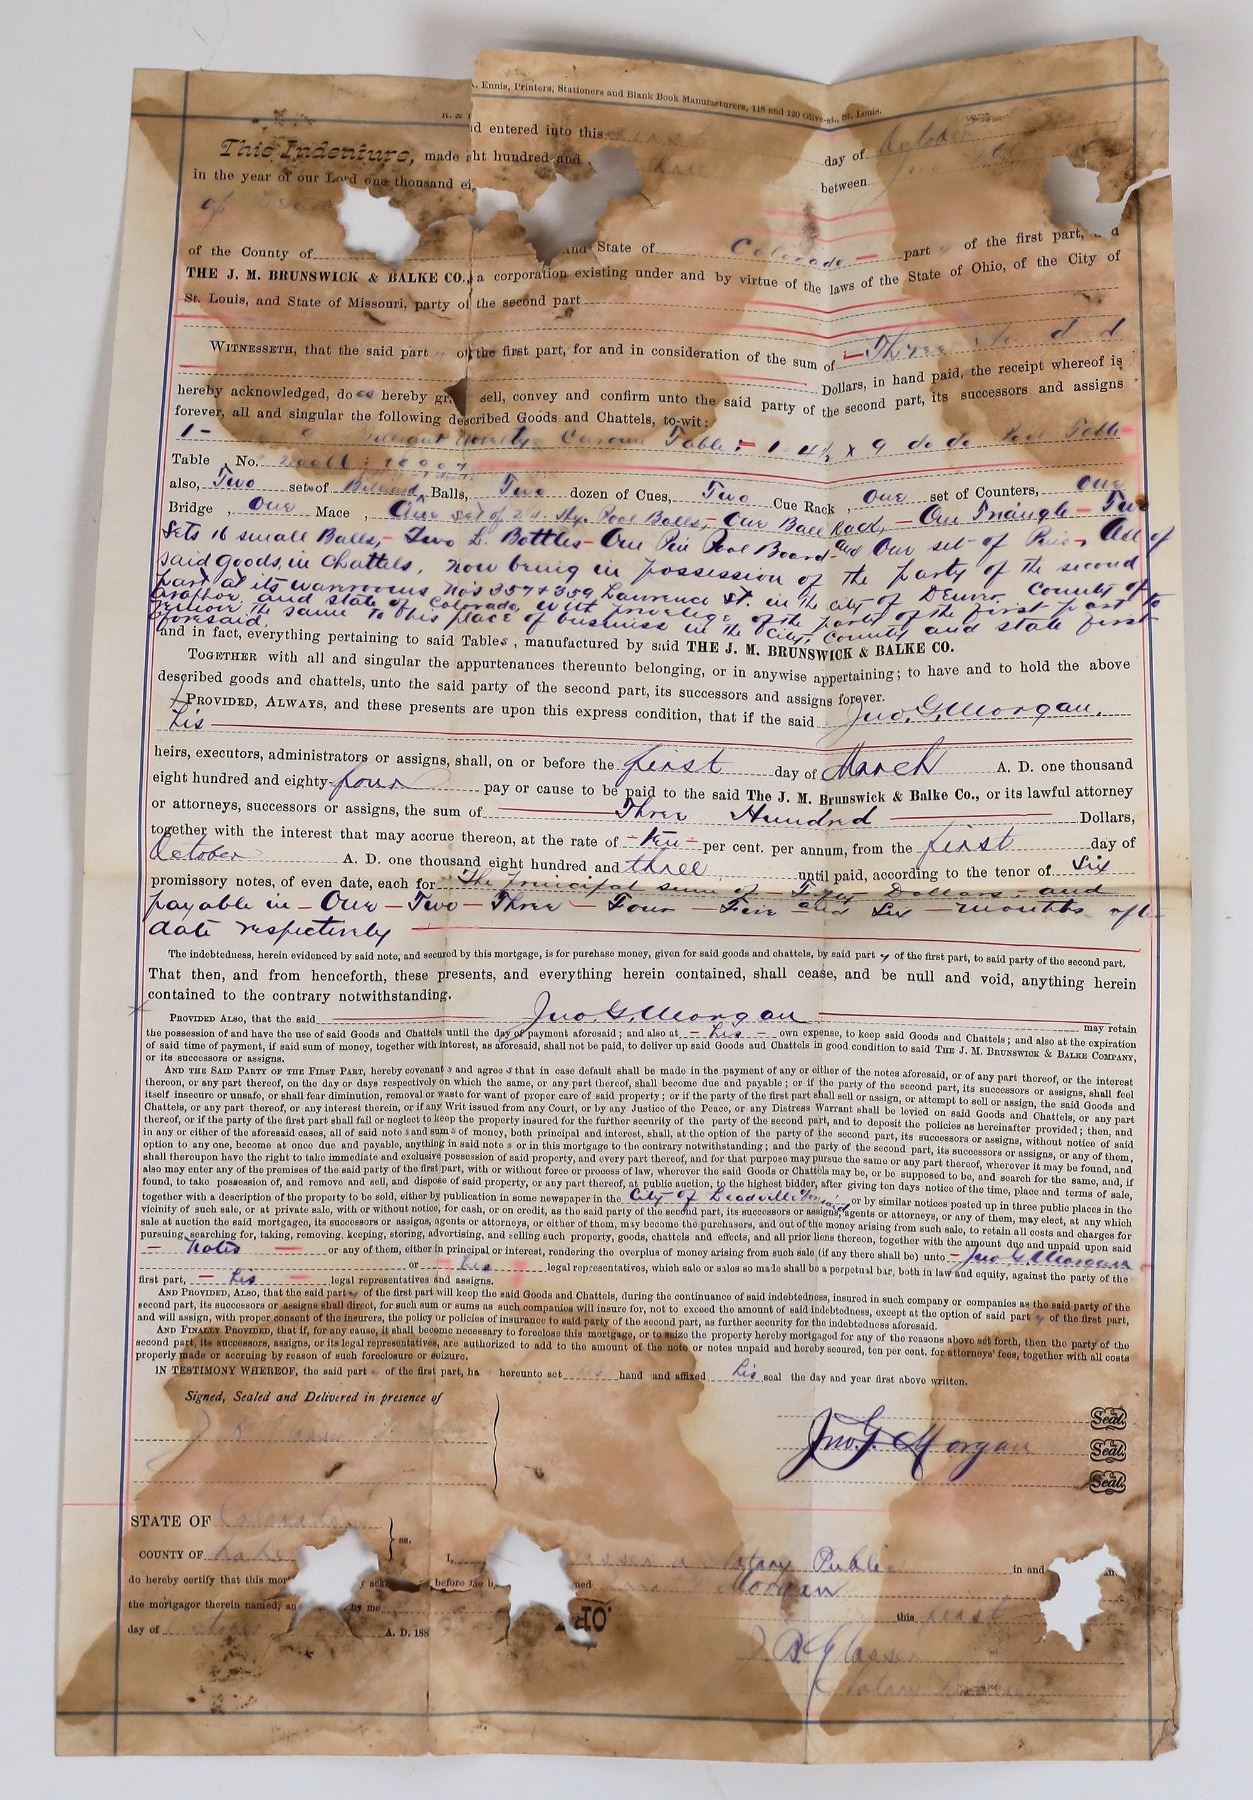 Ennis, Printers, Stationers and Blank Book Manufacturers, 118 and 120 Olive-st., St. Louis.
This Indenture, made and entered into this first day of October
in the year of our Lord one thousand eight hundred and between
of
of the County of and State of Colorado part y of the first part, and
THE J. M. BRUNSWICK & BALKE CO., a corporation existing under and by virtue of the laws of the State of Ohio, of the City of
St. Louis, and State of Missouri, party of the second part
WITNESSETH, that the said part y of the first part, for and in consideration of the sum of Three
Dollars, in hand paid, the receipt whereof is
hereby acknowledged, do es hereby sell, convey and confirm unto the said party of the second part, its successors and assigns
forever, all and singular the following described Goods and Chattels, to-wit:
1 - Novelty Carom Table 1 - 4½ x 9 do do Pool Table
Table , No.
also, Two sets of Billiard Balls, Two dozen of Cues, Two Cue Rack , One set of Counters, One
Bridge , One Mace , One set of Pool Balls, - One Ball Rack, - One Triangle - Two
Sets 16 small Balls, - Two L. Bottles - One Pin Pool Board - and One set of Pins - All of
said goods, in chattels, now being in possession of the party of the second
part at its warerooms No's 357 & 359 Laurence St. in the city of Denver, County of
Araphoe and state of Colorado, with privelege of the party of the first part to
remove the same to his place of business in the City, County and state first
aforesaid
and in fact, everything pertaining to said Tables , manufactured by said THE J. M. BRUNSWICK & BALKE CO.
TOGETHER with all and singular the appurtenances thereunto belonging, or in anywise appertaining; to have and to hold the above
described goods and chattels, unto the said party of the second part, its successors and assigns forever.
PROVIDED, ALWAYS, and these presents are upon this express condition, that if the said Jno. G. Morgan.
his
heirs, executors, administrators or assigns, shall, on or before the first day of March A. D. one thousand
eight hundred and eighty-four pay or cause to be paid to the said The J. M. Brunswick & Balke Co., or its lawful attorney
or attorneys, successors or assigns, the sum of Three Hundred Dollars,
together with the interest that may accrue thereon, at the rate of - ten - per cent. per annum, from the first day of
October A. D. one thousand eight hundred and three until paid, according to the tenor of Six
promissory notes, of even date, each for The principal sum of - Fifty Dollars - and
payable in - One - Two - Three - Four - Five and Six - months after
date respectively
The indebtedness, herein evidenced by said note, and secured by this mortgage, is for purchase money, given for said goods and chattels, by said part y of the first part, to said party of the second part.
That then, and from henceforth, these presents, and everything herein contained, shall cease, and be null and void, anything herein
contained to the contrary notwithstanding.
PROVIDED ALSO, that the said Jno. G. Morgan may retain
the possession of and have the use of said Goods and Chattels until the day of payment aforesaid; and also at - his - own expense, to keep said Goods and Chattels; and also at the expiration
of said time of payment, if said sum of money, together with interest, as aforesaid, shall not be paid, to deliver up said Goods and Chattels in good condition to said THE J. M. BRUNSWICK & BALKE COMPANY,
or its successors or assigns.
AND THE SAID PARTY OF THE FIRST PART, hereby covenant s and agree s that in case default shall be made in the payment of any or either of the notes aforesaid, or of any part thereof, or the interest
thereon, or any part thereof, on the day or days respectively on which the same, or any part thereof, shall become due and payable; or if the party of the second part, its successors or assigns, shall feel
itself insecure or unsafe, or shall fear diminution, removal or waste for want of proper care of said property; or if the party of the first part shall sell or assign, or attempt to sell or assign, the said Goods and
Chattels, or any part thereof, or any interest therein, or if any Writ issued from any Court, or by any Justice of the Peace, or any Distress Warrant shall be levied on said Goods and Chattels, or any part
thereof, or if the party of the first part shall fail or neglect to keep the property insured for the further security of the party of the second part, and to deposit the policies as hereinafter provided; then, and
in any or either of the aforesaid cases, all of said note s and sum s of money, both principal and interest, shall, at the option of the party of the second part, its successors or assigns, without notice of said
option to any one, become at once due and payable, anything in said note s or in this mortgage to the contrary notwithstanding; and the party of the second part, its successors or assigns, or any of them,
shall thereupon have the right to take immediate and exclusive possession of said property, and every part thereof, and for that purpose may pursue the same or any part thereof, wherever it may be found, and
also may enter any of the premises of the said party of the first part, with or without force or process of law, wherever the said Goods or Chattels may be, or be supposed to be, and search for the same, and, if
found, to take possession of, and remove and sell, and dispose of said property, or any part thereof, at public auction, to the highest bidder, after giving ten days notice of the time, place and terms of sale,
together with a description of the property to be sold, either by publication in some newspaper in the City of Leadville or by similar notices posted up in three public places in the
vicinity of such sale, or at private sale, with or without notice, for cash, or on credit, as the said party of the second part, its successors or assigns, agents or attorneys, or any of them, may elect, at any which
sale at auction the said mortgagee, its successors or assigns, agents or attorneys, or either of them, may become the purchasers, and out of the money arising from such sale, to retain all costs and charges for
pursuing, searching for, taking, removing, keeping, storing, advertising, and selling such property, goods, chattels and effects, and all prior liens thereon, together with the amount due and unpaid upon said
- Notes - or any of them, either in principal or interest, rendering the overplus of money arising from such sale (if any there shall be) unto - Jno G. Morgan
or his legal representatives, which sale or sales so made shall be a perpetual bar, both in law and equity, against the party of the
first part, - his - legal representatives and assigns.
AND PROVIDED, ALSO, that the said part y of the first part will keep the said Goods and Chattels, during the continuance of said indebtedness, insured in such company or companies as the said party of the
second part, its successors or assigns shall direct, for such sum or sums as such companies will insure for, not to exceed the amount of said indebtedness, except at the option of said part y of the first part,
and will assign, with proper consent of the insurers, the policy or policies of insurance to said party of the second part, as further security for the indebtedness aforesaid.
AND FINALLY PROVIDED, that if, for any cause, it shall become necessary to foreclose this mortgage, or to seize the property hereby mortgaged for any of the reasons above set forth, then the party of the
second part, its successors, assigns, or its legal representatives, are authorized to add to the amount of the note or notes unpaid and hereby secured, ten per cent. for attorneys' fees, together with all costs
properly made or accruing by reason of such foreclosure or seizure.
IN TESTIMONY WHEREOF, the said part of the first part, ha hereunto set his hand and affixed his seal the day and year first above written.
Signed, Sealed and Delivered in presence of
Seal.
Jno. G. Morgan Seal.
Seal.
STATE OF Colorado
ss.
COUNTY OF Lake I, a Notary Public in and
do hereby certify that this mor before me Morgan
the mortgagor therein named, an by me this first
day of October A. D. 188
J. B. Glasser
Notary